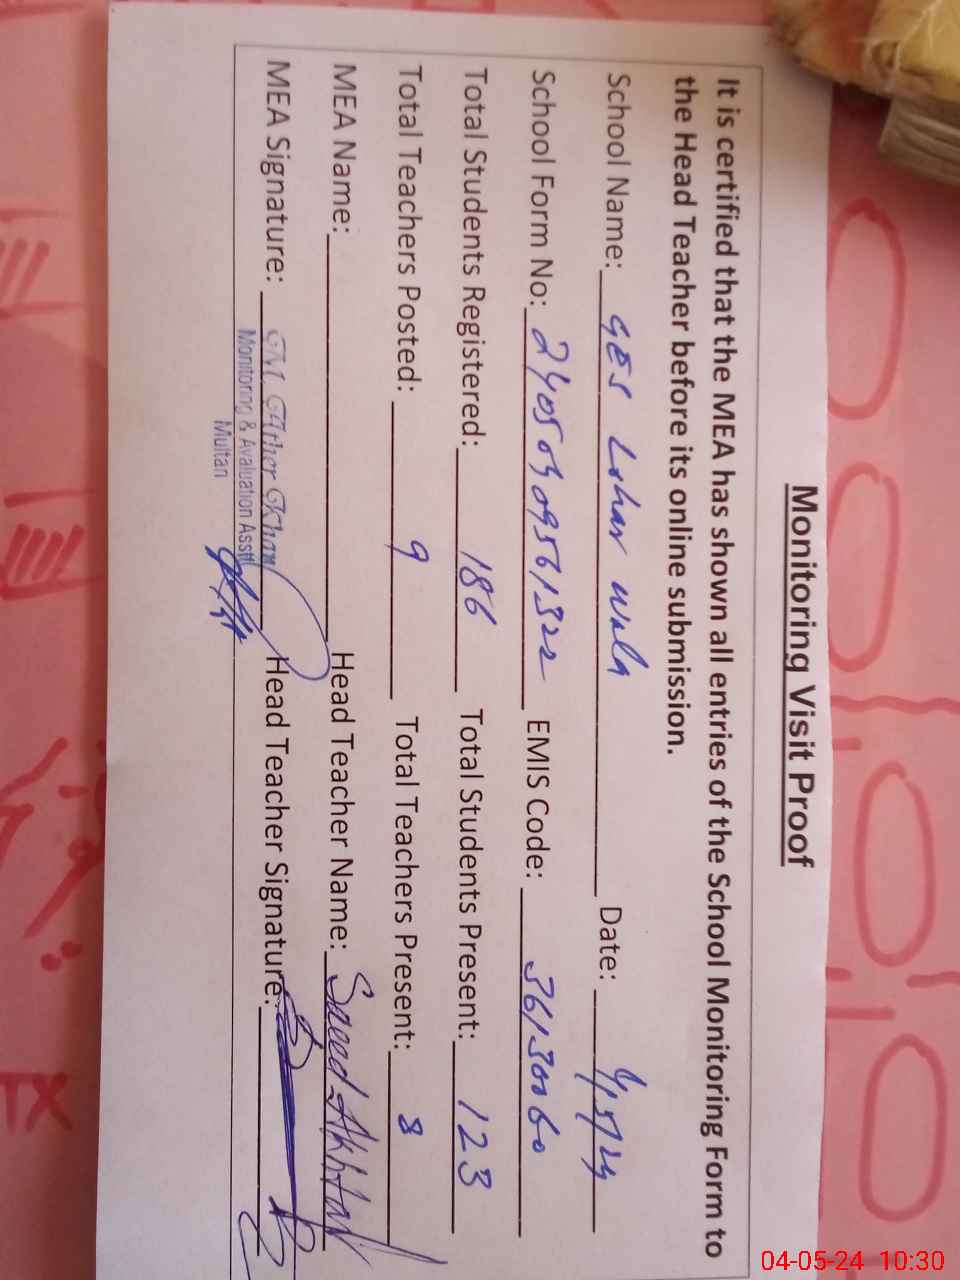 Monitoring Visit Proof
It is certified that the MEA has shown all entries of the School Monitoring Form to
the Head Teacher before its online submission.
School Name: GES Lohar wala Date: 4/5/24
School Form No: 24050309561322 EMIS Code: 36130060
Total Students Registered: 186 Total Students Present: 123
Total Teachers Posted: 9 Total Teachers Present: 8
MEA Name: Head Teacher Name: Saeed Akhtar
MEA Signature: Head Teacher Signature:
GM Ather Khan
Monitoring & Evaluation Asstt
Multan
TX
04-05-24 10:30